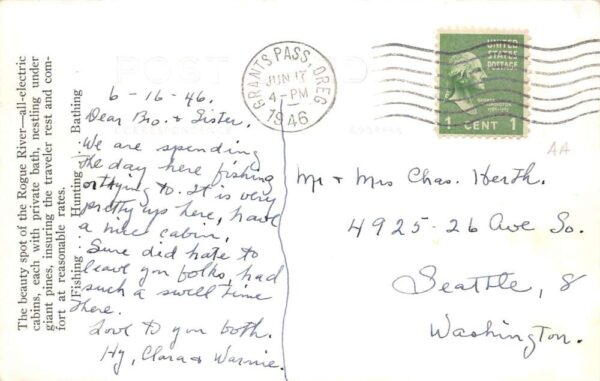 The beauty spot of the Rogue River—all-electric
cabins, each with private bath, nestling under
giant pines, insuring the traveler rest and com-
fort at reasonable rates.
Fishing : : Hunting : : Bathing
POST CARD
CORRESPONDENCE
ADDRESS
6-16-46.
Dear Bro. & Sister.
We are spending
the day here fishing
or trying to. It is very
pretty up here, have
a nice cabin.
Sure did hate to
leave you folks, had
such a swell time
there.
Love to you both.
Hy, Clara & Warnie.
GRANTS PASS, OREG
JUN 17
4-PM
1946
UNITED
STATES
POSTAGE
1 CENT 1
AA
Mr & Mrs Chas. Herth.
4925-26 Ave So.
Seattle, 8
Washington.